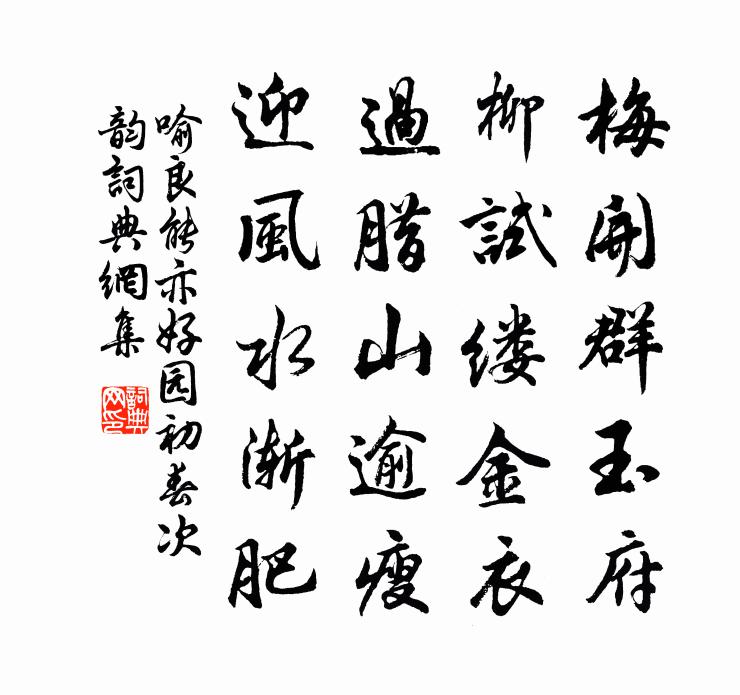 梅開群玉府
柳試缕金衣
過腊山逾瘦
迎風水漸肥
喻良能亦好园初春次
韵詞典網集
詞典网印